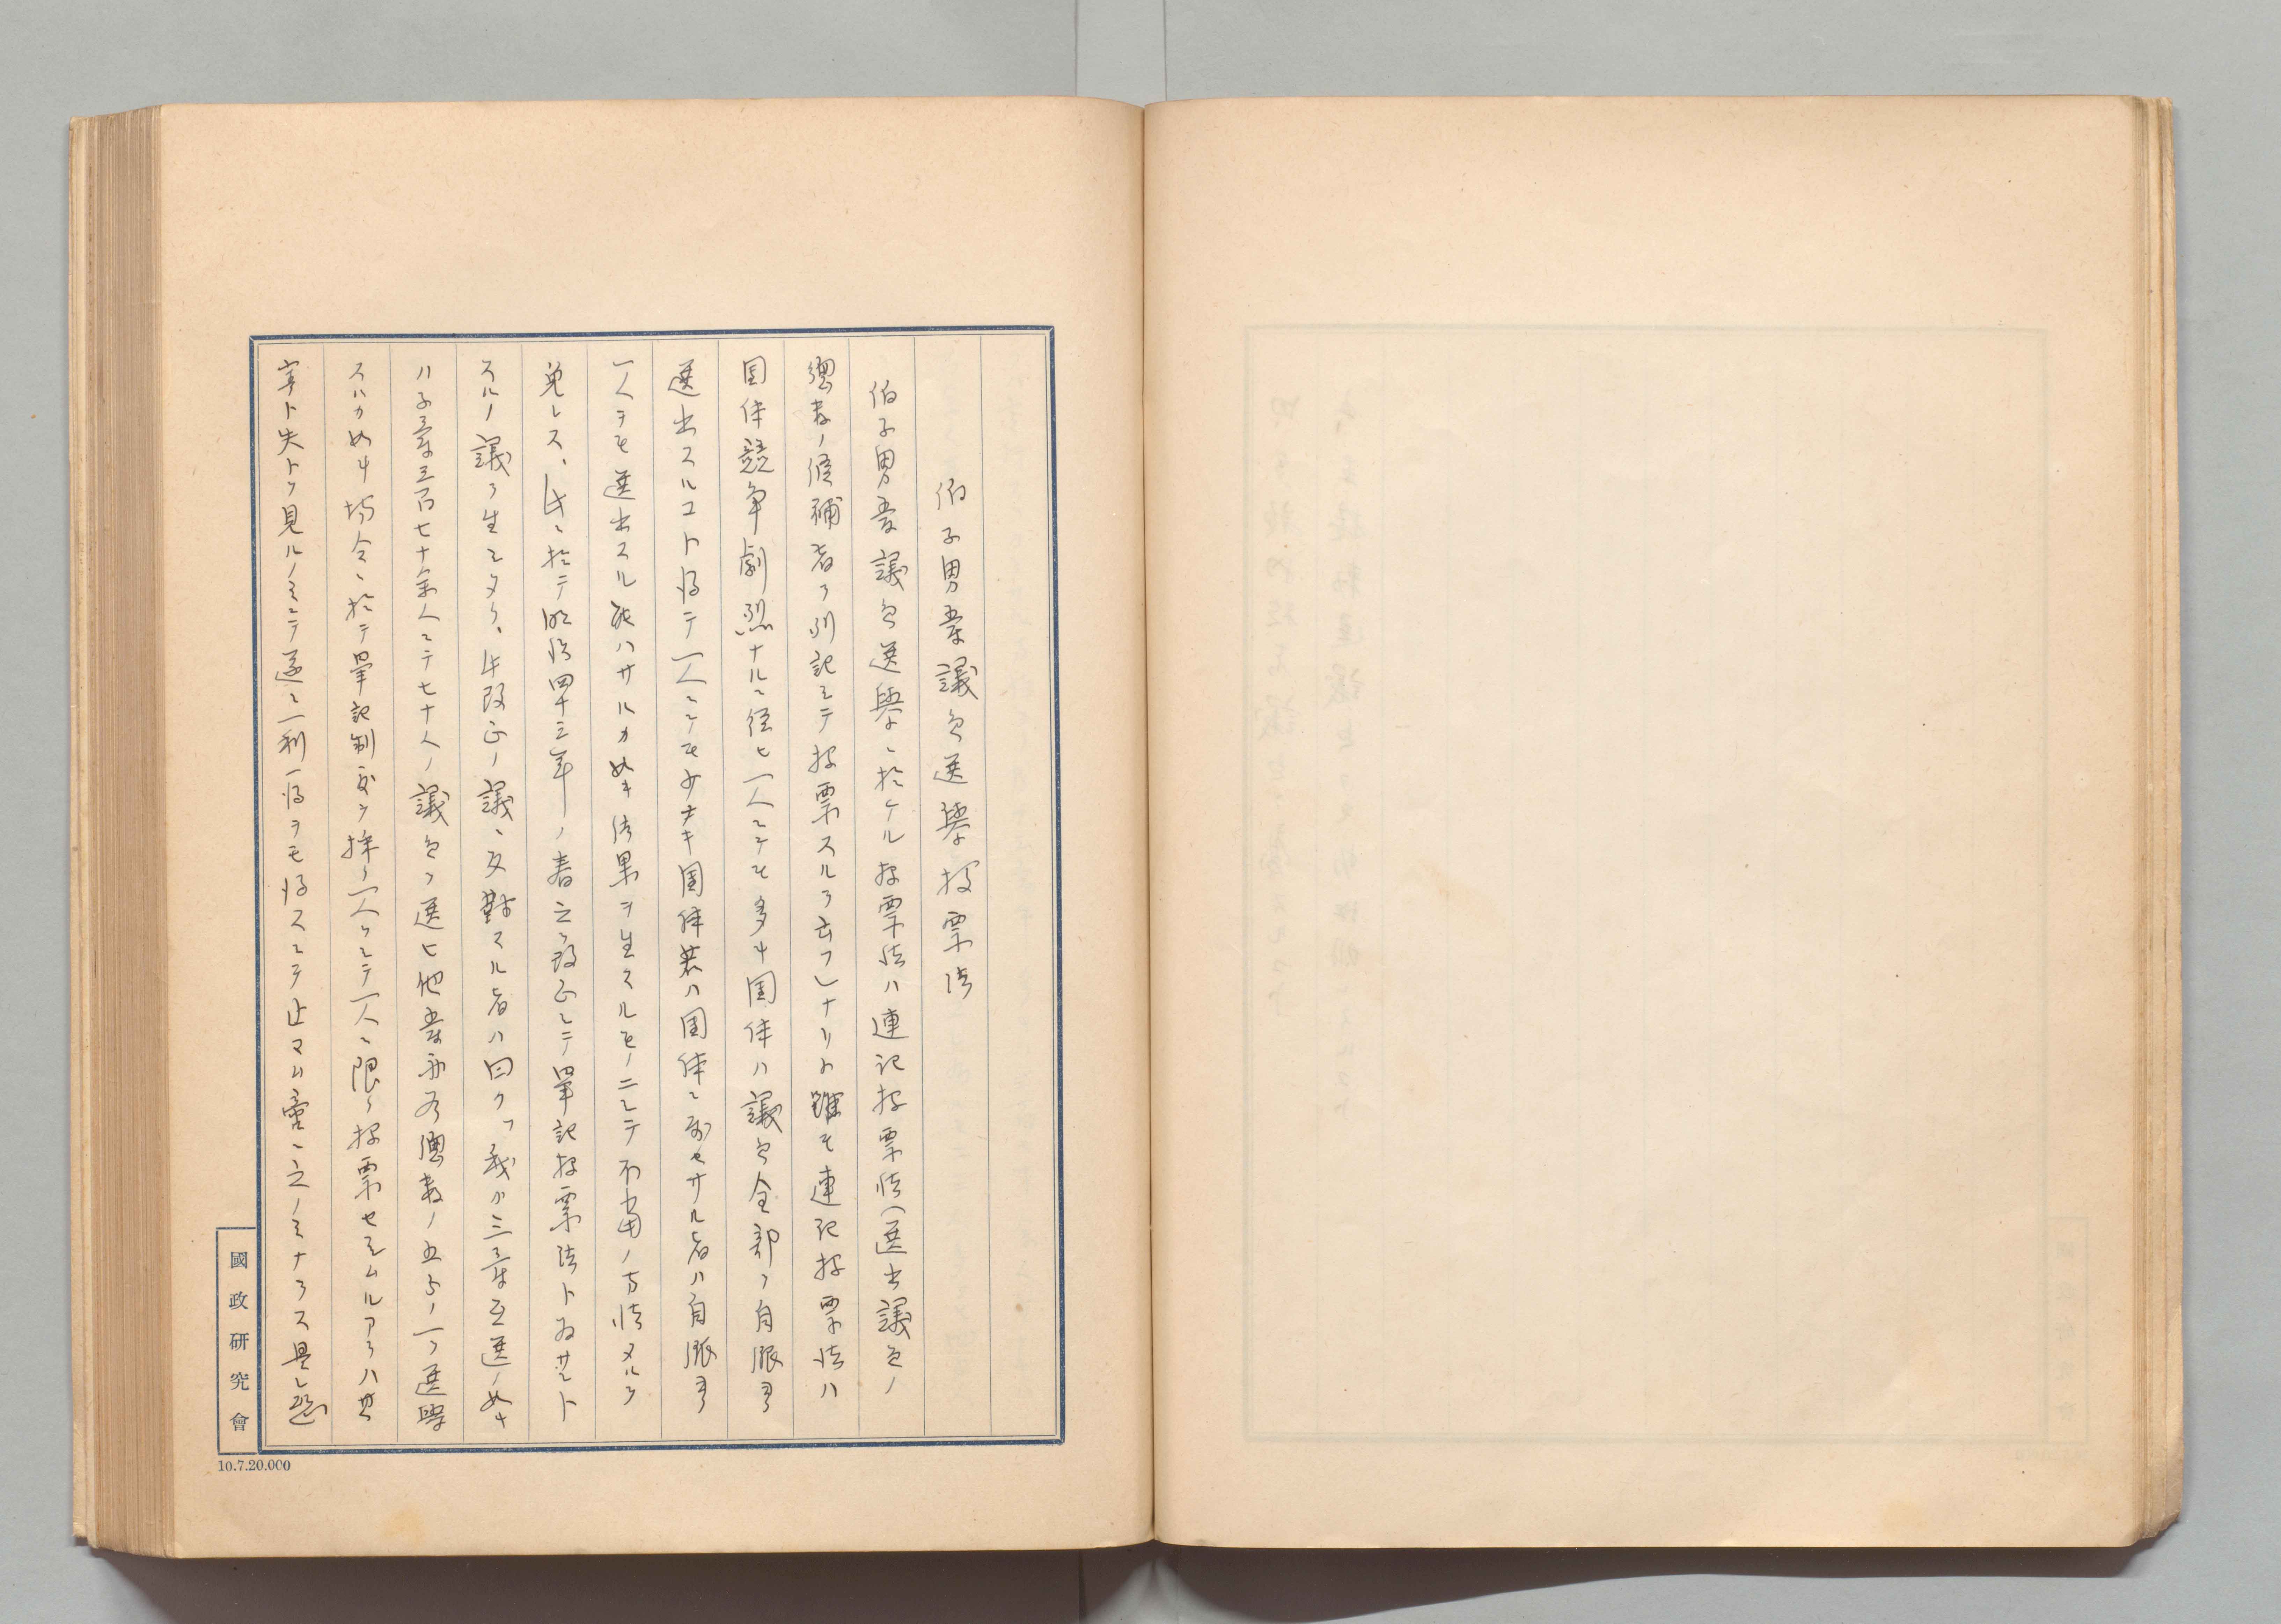 伯子男爵議員選擧投票法
伯子男爵議員選擧ニ於ケル投票法ハ連記投票法(選出議員ノ
總数ノ候補者ヲ列記シテ投票スルヲ云フ)ナリト雖モ連記投票法ハ
団体競争劇烈ナルニ従ヒ一人ニテモ多キ団体ハ議員全部ヲ自派ヨリ
選出スルコトヲ得テ一人ニテモ少ナキ団体若ハ団体ニ属セサル者ハ自派ヨリ
一人ヲモ選出スル能ハサルカ如キ結果ヲ生スルモノニシテ不当ノ方法タルヲ
免レス、此ニ於テ明治四十三年ノ春之ヲ改正シテ単記投票法ト為サント
スルノ議ヲ生シタリ、此改正ノ議ニ反対スル者ハ曰ク「我カ三爵互選ノ如キ
ハ子爵三百七十余人ニテ七十人ノ議員ヲ選ヒ他爵亦略総数ノ五分ノ一ヲ選挙
スルカ如キ場合ニ於テ単記制度ヲ採リ一人ヲシテ一人ニ限リ投票セシムルアラハ其
害ト失トヲ見ルノミニテ遂ニ一利一得ヲモ得スシテ止マム啻ニ之ノミナラス是レ
國政研究會
10.7.20.000